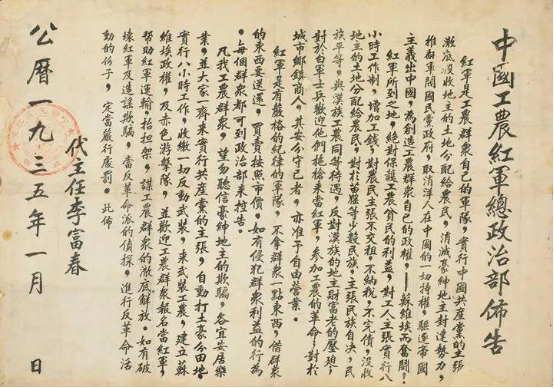 中國工農紅軍總政治部佈告
紅軍是工農群衆自己的軍隊,實行中國共產黨的主張
澈底沒收地主的土地分配給農民,消滅豪紳地主封建勢力,
推翻軍閥國民黨政府,取消洋人在中國的一切持權,驅逐帝國
主義出中國,為創造工農群衆自己的政權,——蘇維埃而奮鬪!
紅軍所到之地,絕對保護工農貧民的利益,對工人主張實行八
小時工作制,增加工錢,對農民主張不交租,不納稅,不完債,沒收
地主的土地分配給農民,對於苗猺等少數民族,主張民族自决,民
族平等,與漢族工農同等待遇,反對漢族的地主財富老的壓迫,
對於白軍士兵歡迎他們拖槍來當紅軍,參加工農的革命,對於
城市鄉鎮商人,其安分守己者,亦准予自由營業。
紅軍是有嚴格的紀律的軍隊,不拿群衆一點東西,借群衆
的東西要送還,買賣按照市價。如有侵犯群衆利益的行為
,每個群衆都可到政治部來控告。
凡我工農群衆,望勿聽信豪紳地主的欺騙,各宜安居樂
業,並大家一齊來實行共産黨的主張,自動打土豪分田地,
實行八小時工作,收繳一切反動武裝,來武裝工農,建立蘇
維埃政權,及赤色游擊隊,並歡迎工農群衆報名當紅軍,
帮助紅軍運輸,抬担架,謀工農群衆的澈底解放。如有破
壞紅軍及造謠欺騙,當反革命派的偵探,進行反革命活
動的份子,定當嚴行處罰。此佈
代主任李富春
公曆一九三五年一月 日